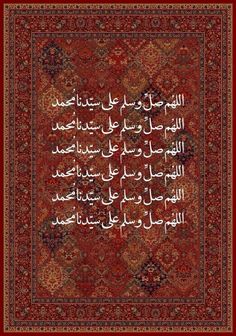 اللهم صلِّ وسلم على سيّدنا محمد
اللهم صلِّ وسلم على سيّدنا محمد
اللهم صلِّ وسلم على سيّدنا محمد
اللهم صلِّ وسلم على سيّدنا محمد
اللهم صلِّ وسلم على سيّدنا محمد
اللهم صلِّ وسلم على سيّدنا محمد